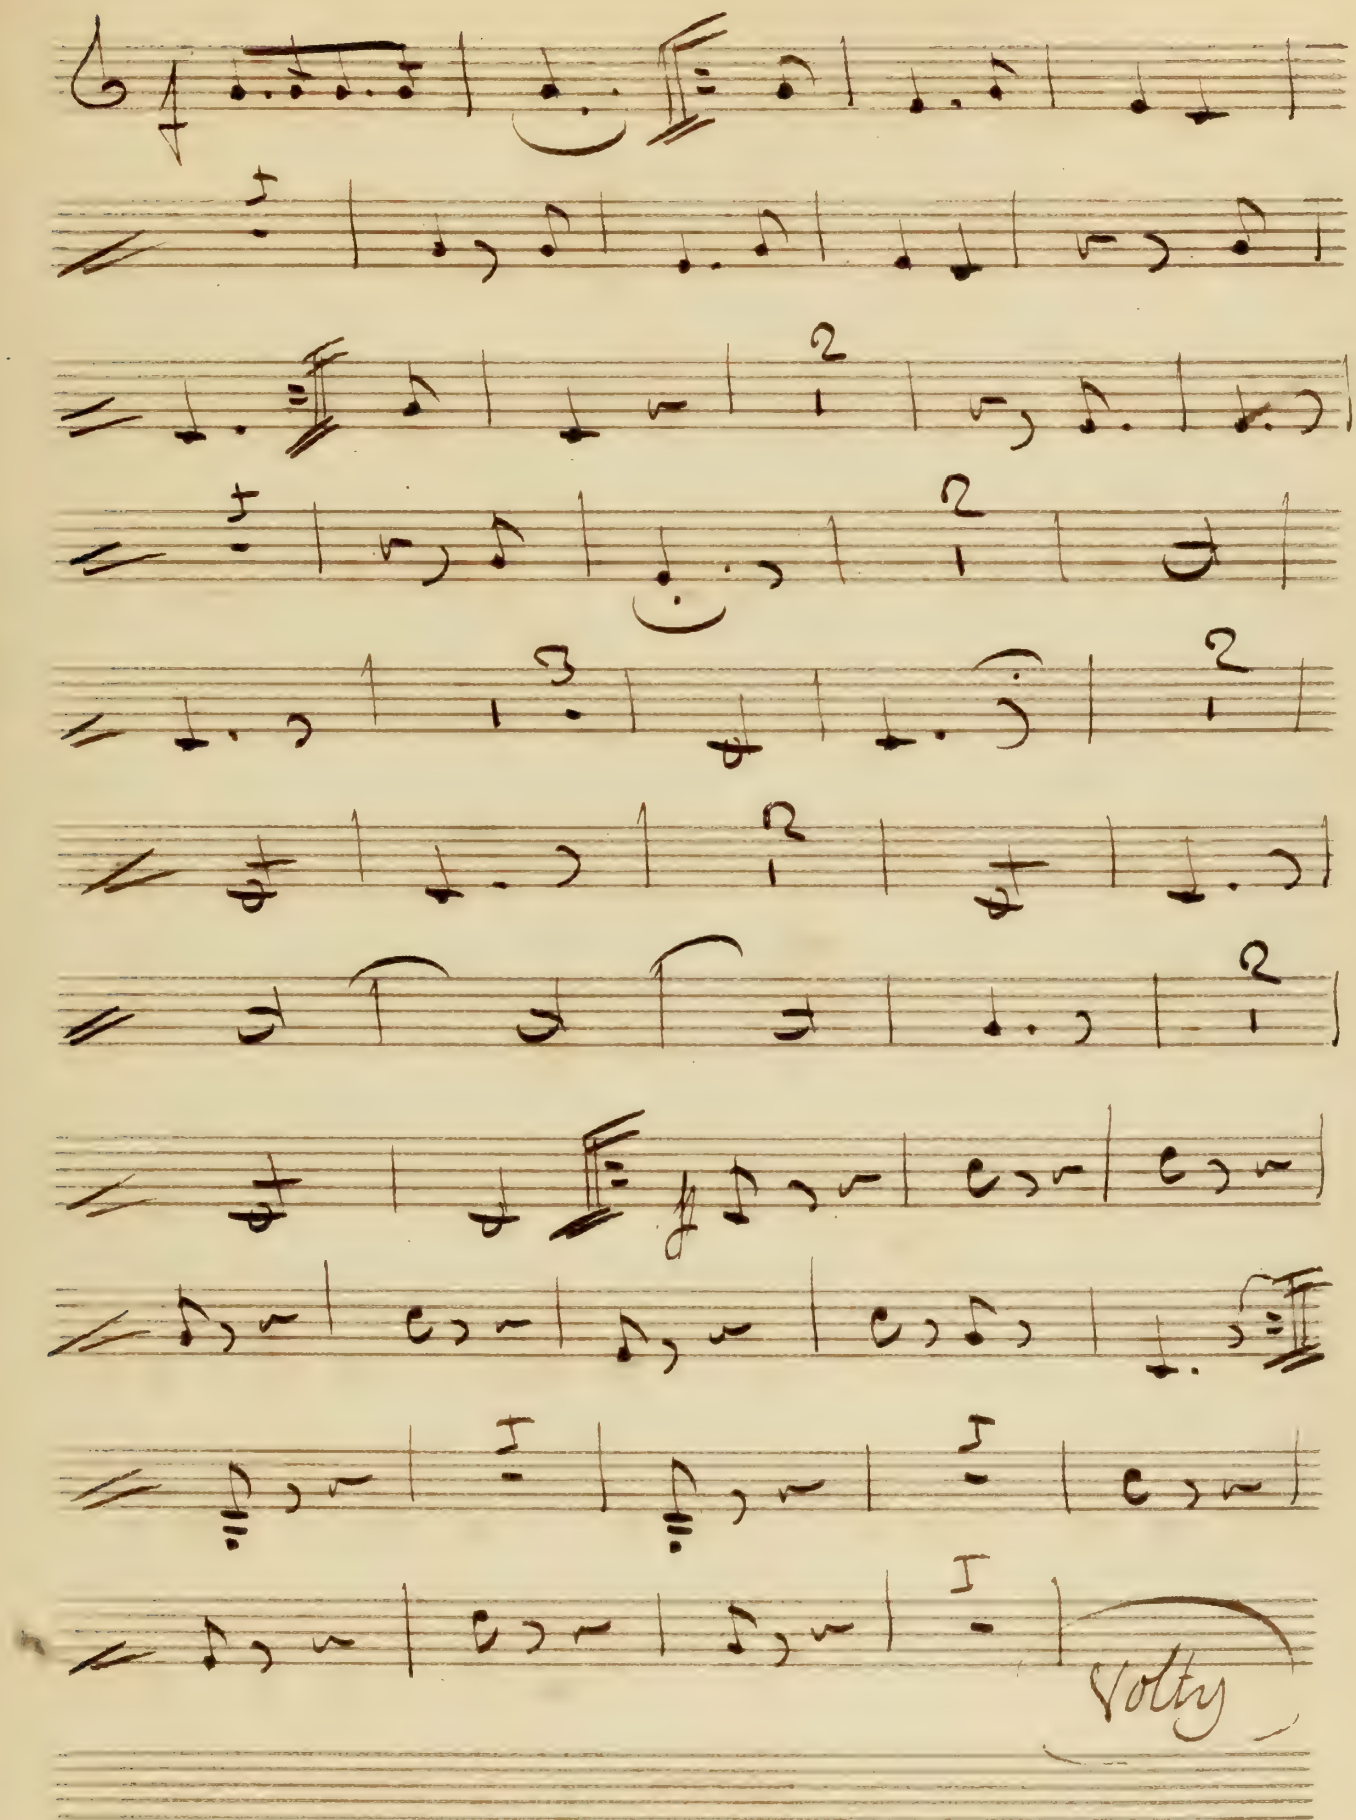 2
2
3
2
2
2
Volty